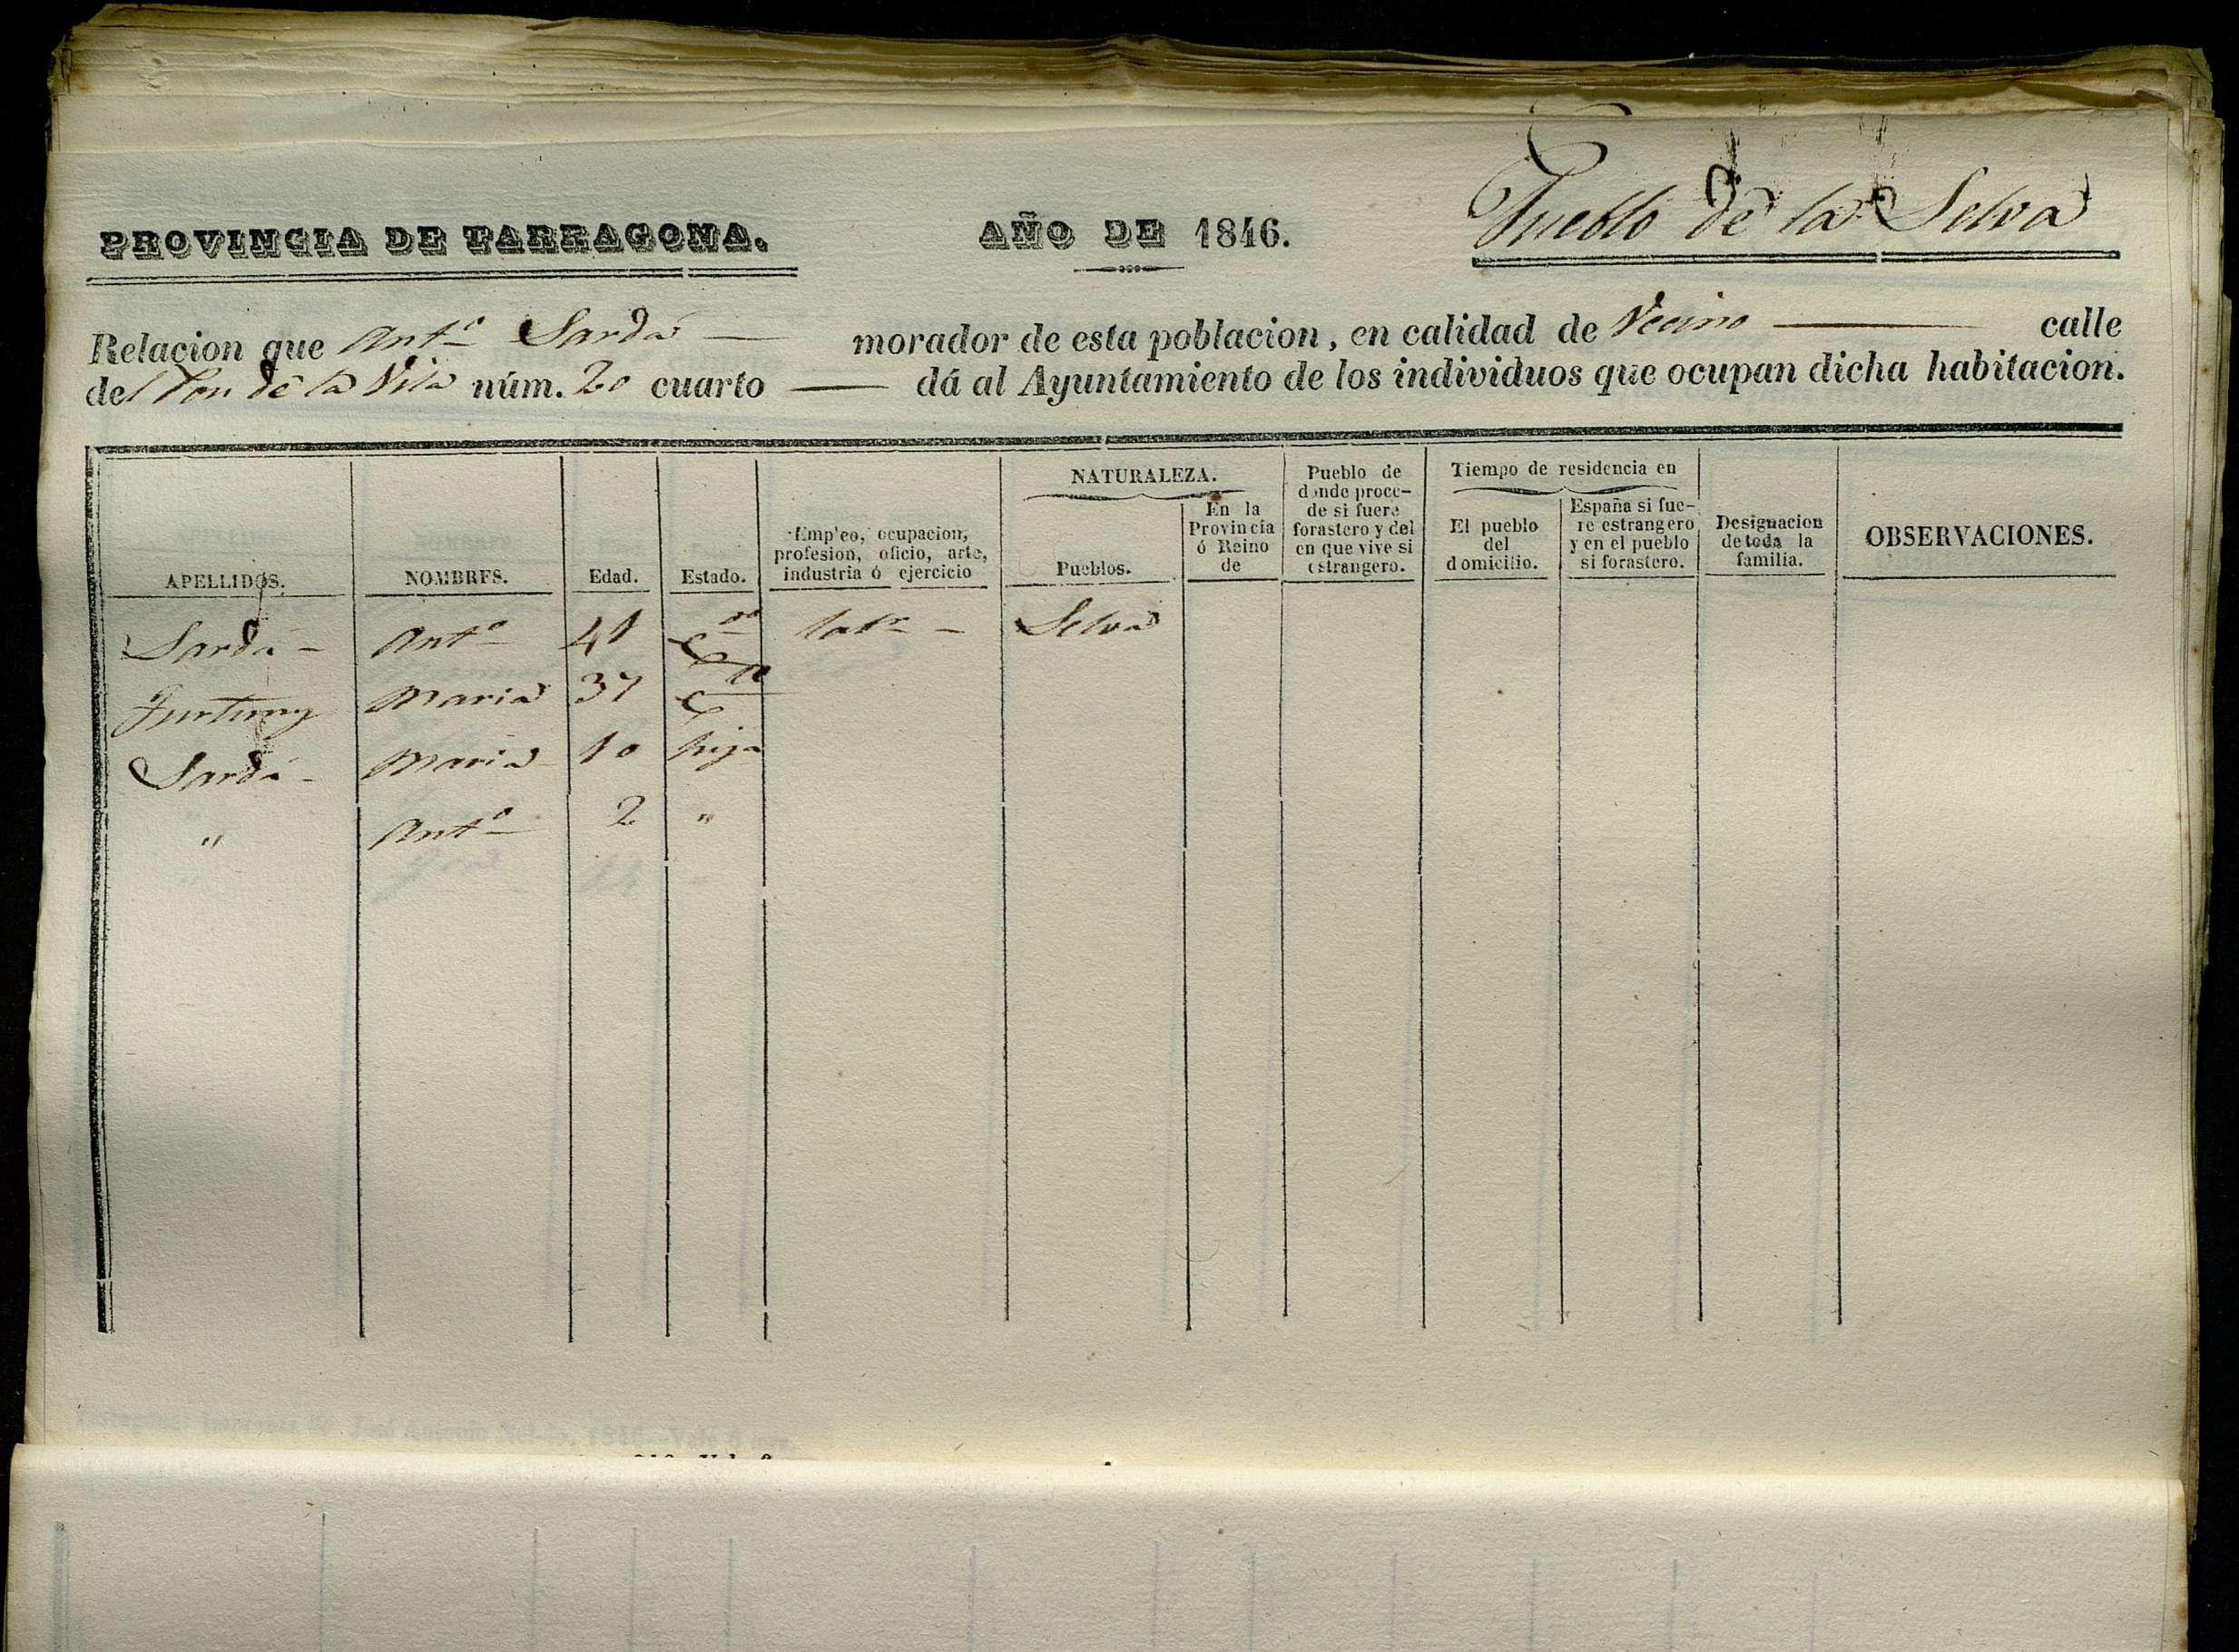 PROVINCIA DE TARRAGONA.
AÑO DE 1846.
Pueblo de la Selva
Relacion que Antº Sardá — morador de esta poblacion, en calidad de Vecino — calle
del de la Vila núm. 20 cuarto — dá al Ayuntamiento de los individuos que ocupan dicha habitacion.
APELLIDOS.
NOMBRES.
Edad.
Estado.
Empleo, ocupacion,
profesion, oficio, arte,
industria ó ejercicio
NATURALEZA.
Pueblos.
En la
Provincia
ó Reino
de
Pueblo de
donde proce-
de si fuere
forastero y del
en que vive si
estrangero.
Tiempo de residencia en
El pueblo
del
domicilio.
España si fue-
re estrangero
y en el pueblo
si forastero.
Designacion
de toda la
familia.
OBSERVACIONES.
Sardá - Antº 41 Cdo labr - Selva
Furtuny Maria 37 Cda
Sardá - Maria 10 hija
" Antº 2 "